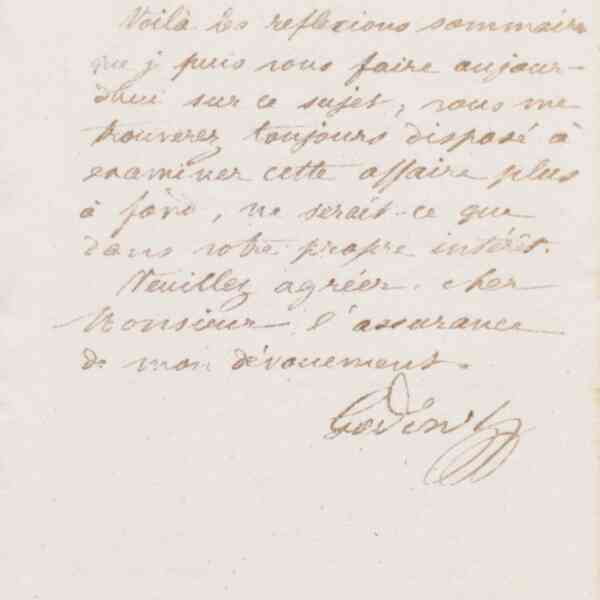 Voilà les reflexions sommaires
que je puis vous faire aujour-
d'hui sur ce sujet, vous me
trouverez toujours disposé à
examiner cette affaire plus
à fond, ne serait-ce que
dans votre propre intérêt.
Veuillez agréer, cher
Monsieur l'assurance
de mon dévouement.
Godin